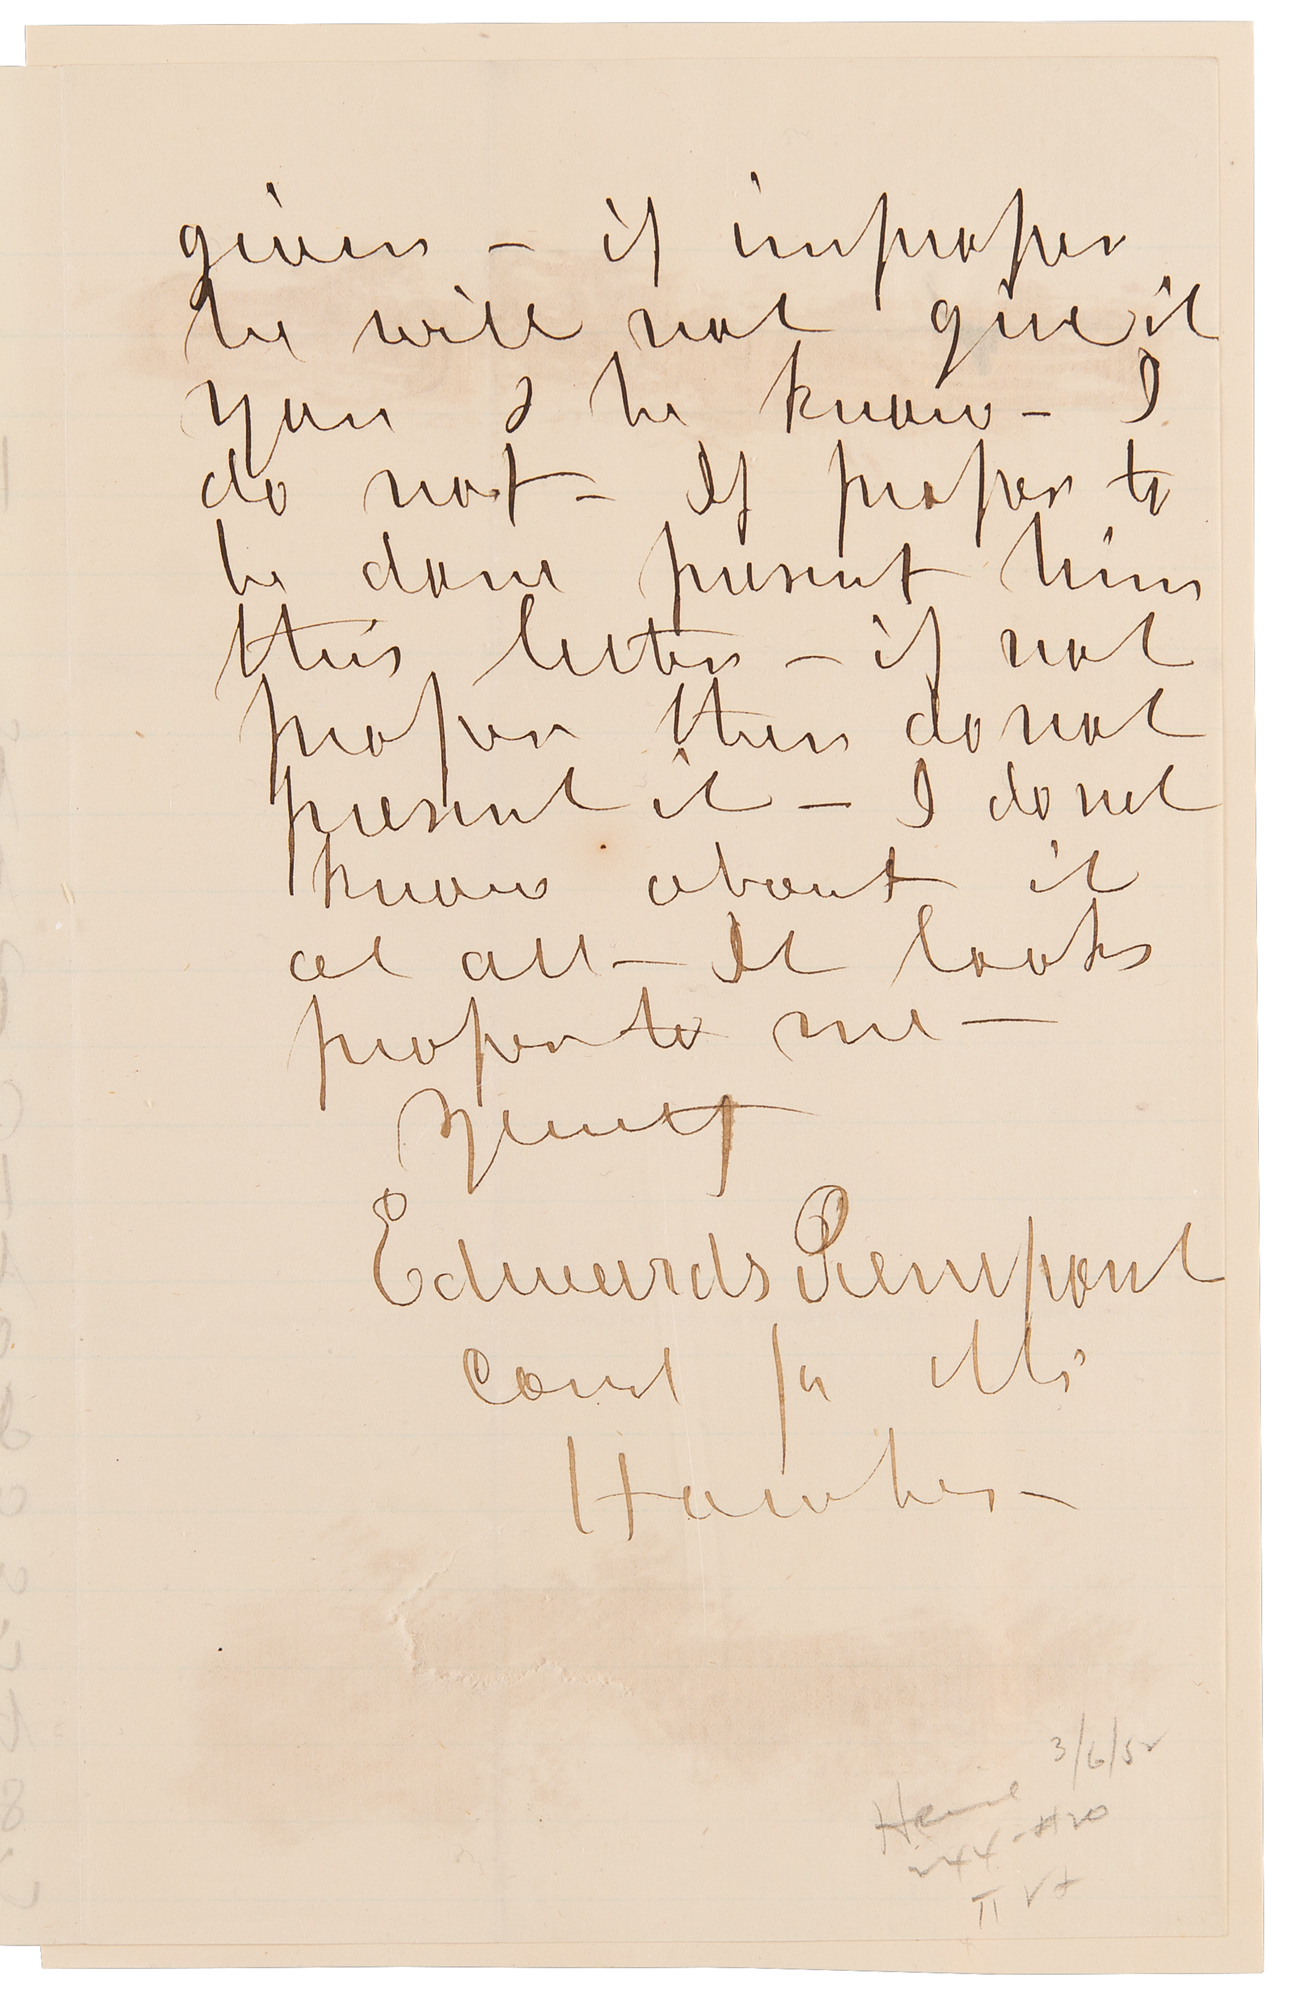 given – if improper
he will not give it
you & he know – I
do not – If proper to
be done present him
this letter – if not
proper then do not
present it – I do not
know about it
at all – It looks
proper to me –
Edwards Pierrepont
for Mr
Hawkes –
3/6/52
II